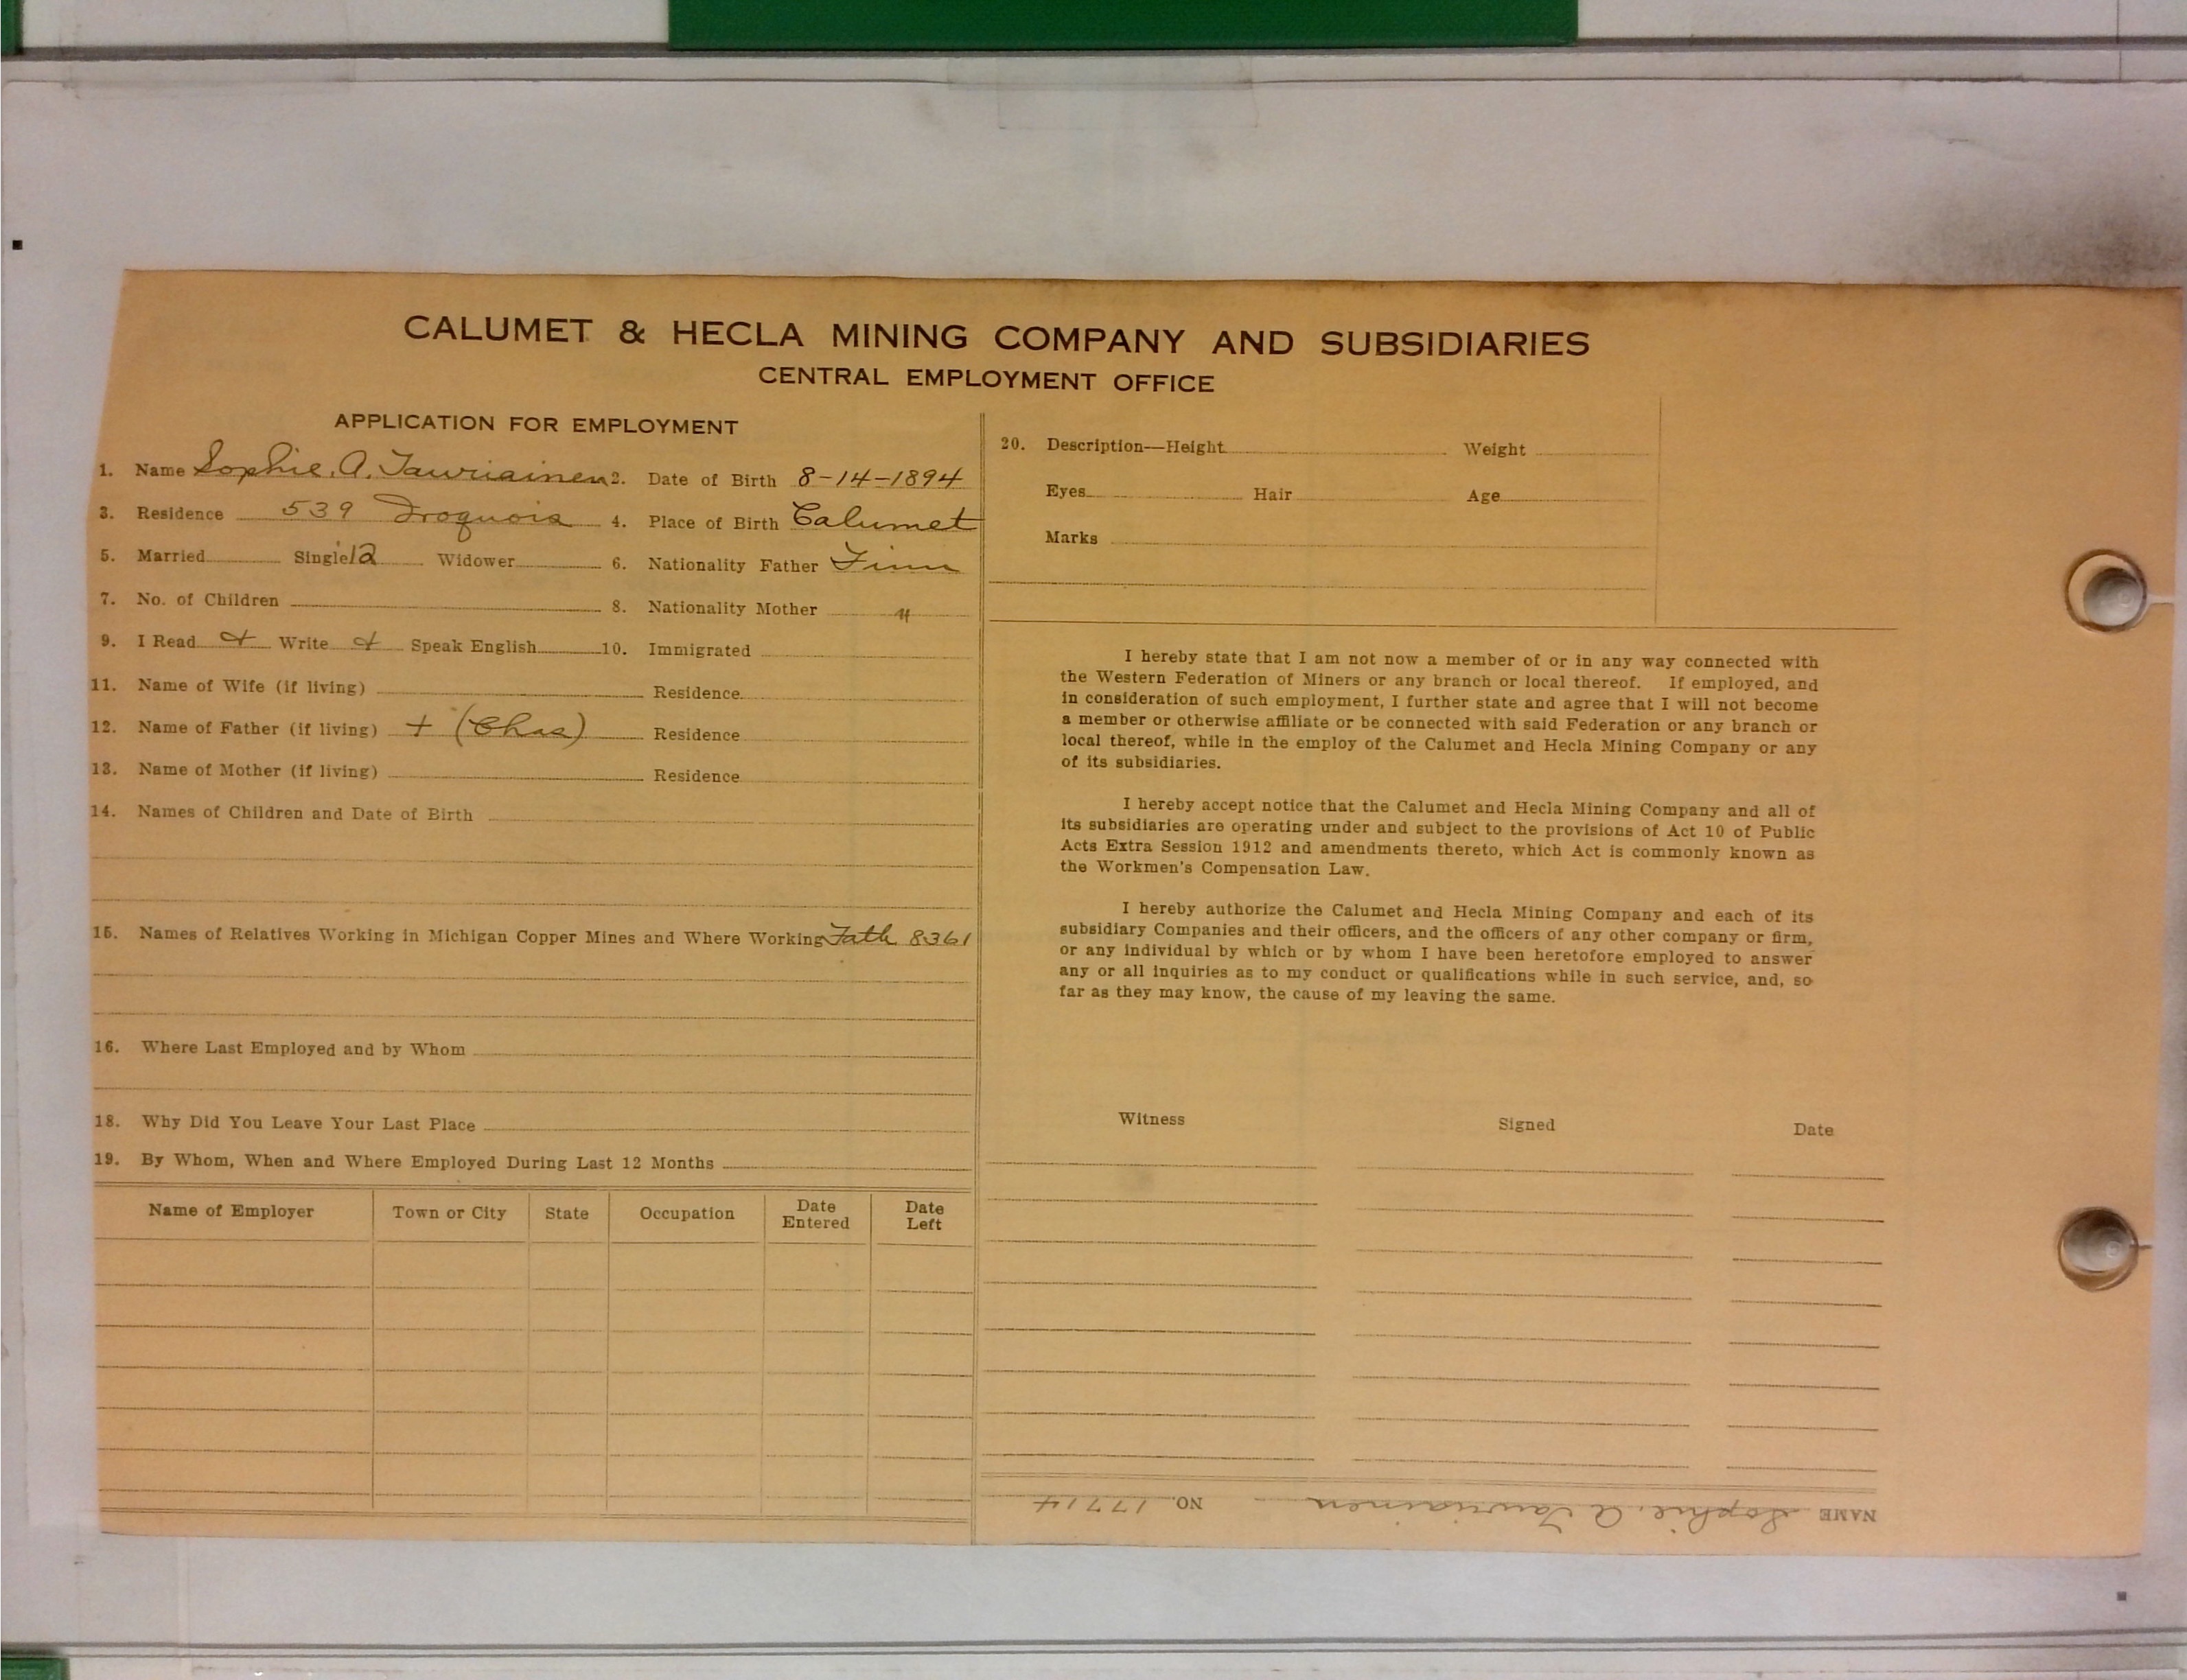 CALUMET & HECLA MINING COMPANY AND SUBSIDIARIES
CENTRAL EMPLOYMENT OFFICE
APPLICATION FOR EMPLOYMENT
1. Name Sophie. A. Tauriainen 2. Date of Birth 8-14-1894
3. Residence 539 Iroquois 4. Place of Birth Calumet
5. Married Single 12 Widower 6. Nationality Father Finn
7. No. of Children 8. Nationality Mother "
9. I Read Write Speak English 10. Immigrated
11. Name of Wife (if living) Residence
12. Name of Father (if living) + (Chas) Residence
13. Name of Mother (if living) Residence
14. Names of Children and Date of Birth
15. Names of Relatives Working in Michigan Copper Mines and Where Working Fath 8361
16. Where Last Employed and by Whom
18. Why Did You Leave Your Last Place
19. By Whom, When and Where Employed During Last 12 Months
Name of Employer Town or City State Occupation Date Entered Date Left
20. Description—Height Weight
Eyes Hair Age
Marks
I hereby state that I am not now a member of or in any way connected with
the Western Federation of Miners or any branch or local thereof. If employed, and
in consideration of such employment, I further state and agree that I will not become
a member or otherwise affiliate or be connected with said Federation or any branch or
local thereof, while in the employ of the Calumet and Hecla Mining Company or any
of its subsidiaries.
I hereby accept notice that the Calumet and Hecla Mining Company and all of
its subsidiaries are operating under and subject to the provisions of Act 10 of Public
Acts Extra Session 1912 and amendments thereto, which Act is commonly known as
the Workmen's Compensation Law.
I hereby authorize the Calumet and Hecla Mining Company and each of its
subsidiary Companies and their officers, and the officers of any other company or firm,
or any individual by which or by whom I have been heretofore employed to answer
any or all inquiries as to my conduct or qualifications while in such service, and, so
far as they may know, the cause of my leaving the same.
Witness Signed Date
NAME Sophie. A Tauriainen NO. 17714